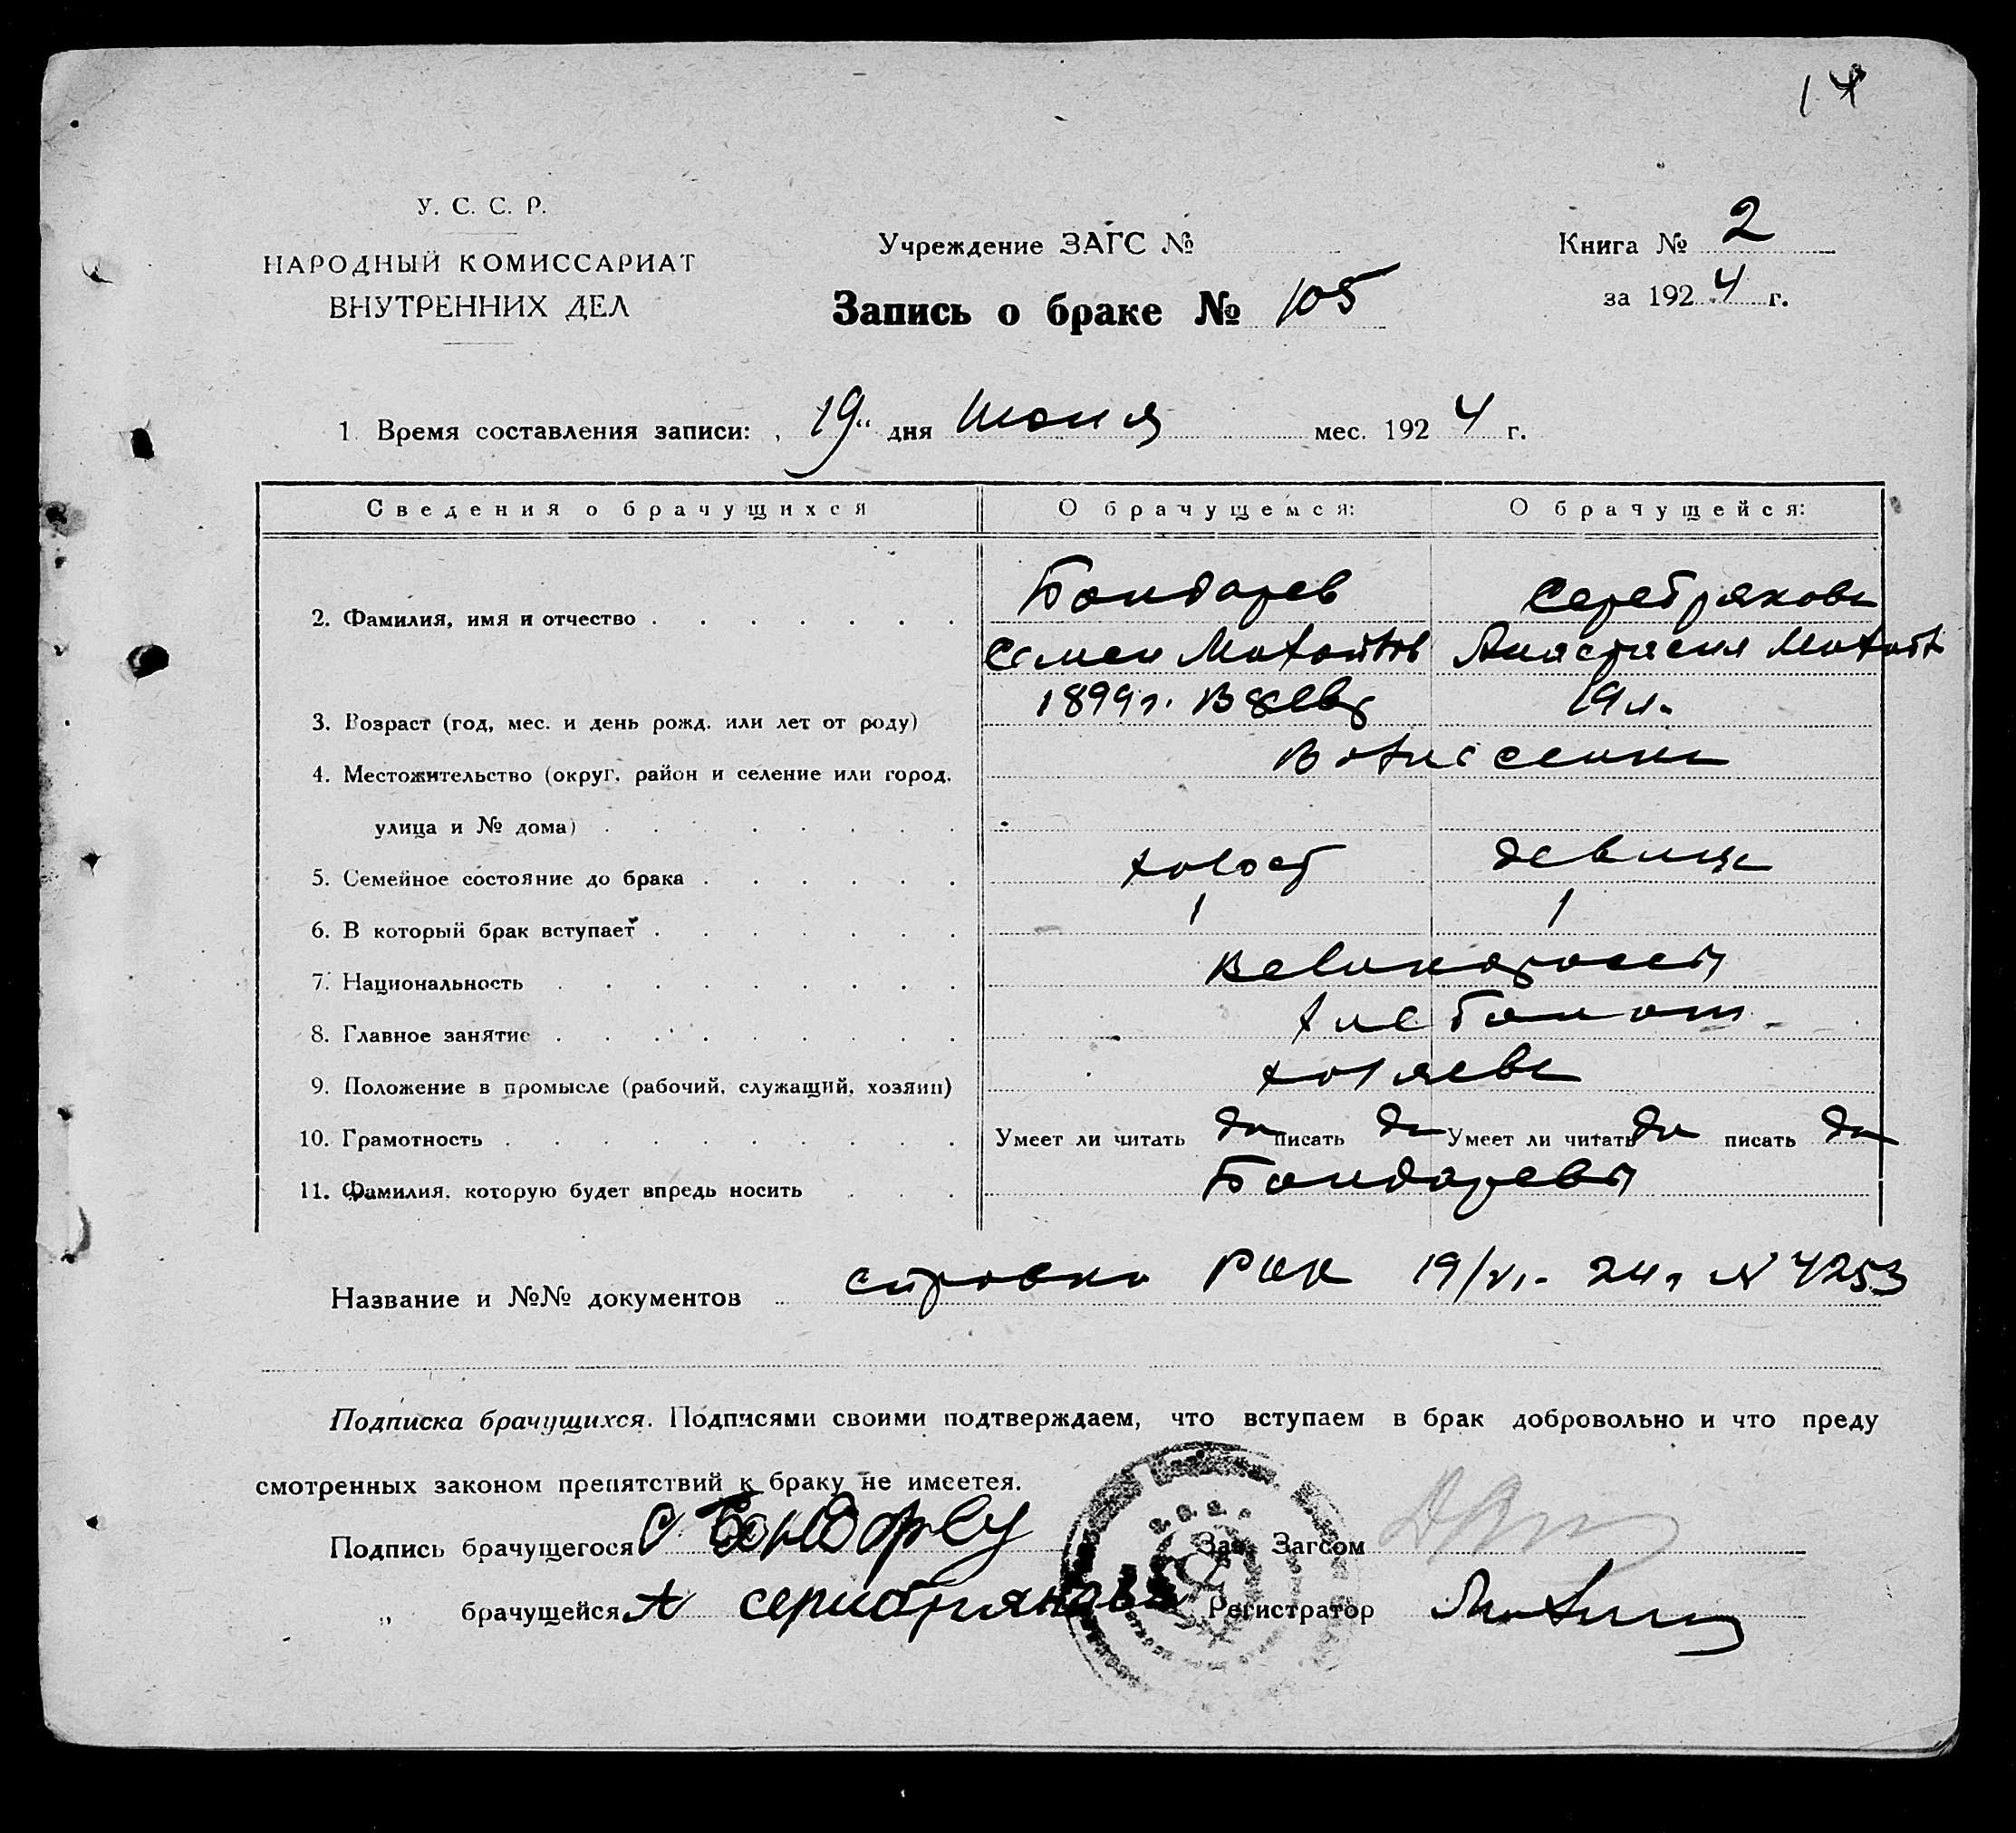 14
У. С. С. Р.
НАРОДНЫЙ КОМИССАРИАТ
ВНУТРЕННИХ ДЕЛ
Учреждение ЗАГС №
Книга № 2
за 1924 г.
Запись о браке № 105
1. Время составления записи: „19“ дня июня мес. 1924 г.
Сведения о брачущихся О брачущемся: О брачущейся:
Бондарев Серебрякова
2. Фамилия, имя и отчество
Семен Анастасия
3. Возраст (год, мес. и день рожд. или лет от роду) 1899 г. 19 л.
4. Местожительство (округ, район и селение или город,
улица и № дома)
5. Семейное состояние до брака холост девица
6. В который брак вступает 1 1
7. Национальность великороссы
8. Главное занятие хлебопаш.
9. Положение в промысле (рабочий, служащий, хозяин) хозяева
10. Грамотность Умеет ли читать да писать да Умеет ли читать да писать да
11. Фамилия, которую будет впредь носить Бондаревы
Название и №№ документов справка РИК 19/VI- 24 г N 4253
Подписка брачущихся. Подписями своими подтверждаем, что вступаем в брак добровольно и что преду
смотренных законом препятствий к браку не имеется.
Подпись брачущегося С Бондарев Зав. Загсом
„ брачущейся А серибрякова Регистратор